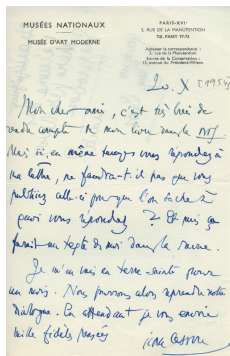 MUSÉES NATIONAUX
MUSÉE D'ART MODERNE
PARIS-XVIᵉ
2, RUE DE LA MANUTENTION
TÉL. PASSY 77-73
Adresser la correspondance :
2, rue de la Manutention
Entrée de la Conservation :
13, avenue du Président-Wilson
20. X [195
Mon cher ami, c'est très bien de
rendre compte de mon livre dans la
Mais si, en même temps vous répondez à
ma lettre, ne faudrait-il pas que vous
publiiez celle-ci pour que l'on sache à
quoi vous répondez ? Et puis ça
ferait un texte de moi dans la revue.
Je m'en vais en terre-sainte pour
un mois. Nous pourrons alors reprendre notre
dialogue. En attendant je vous envoie
mille fidèles pensées
Jean Cassou